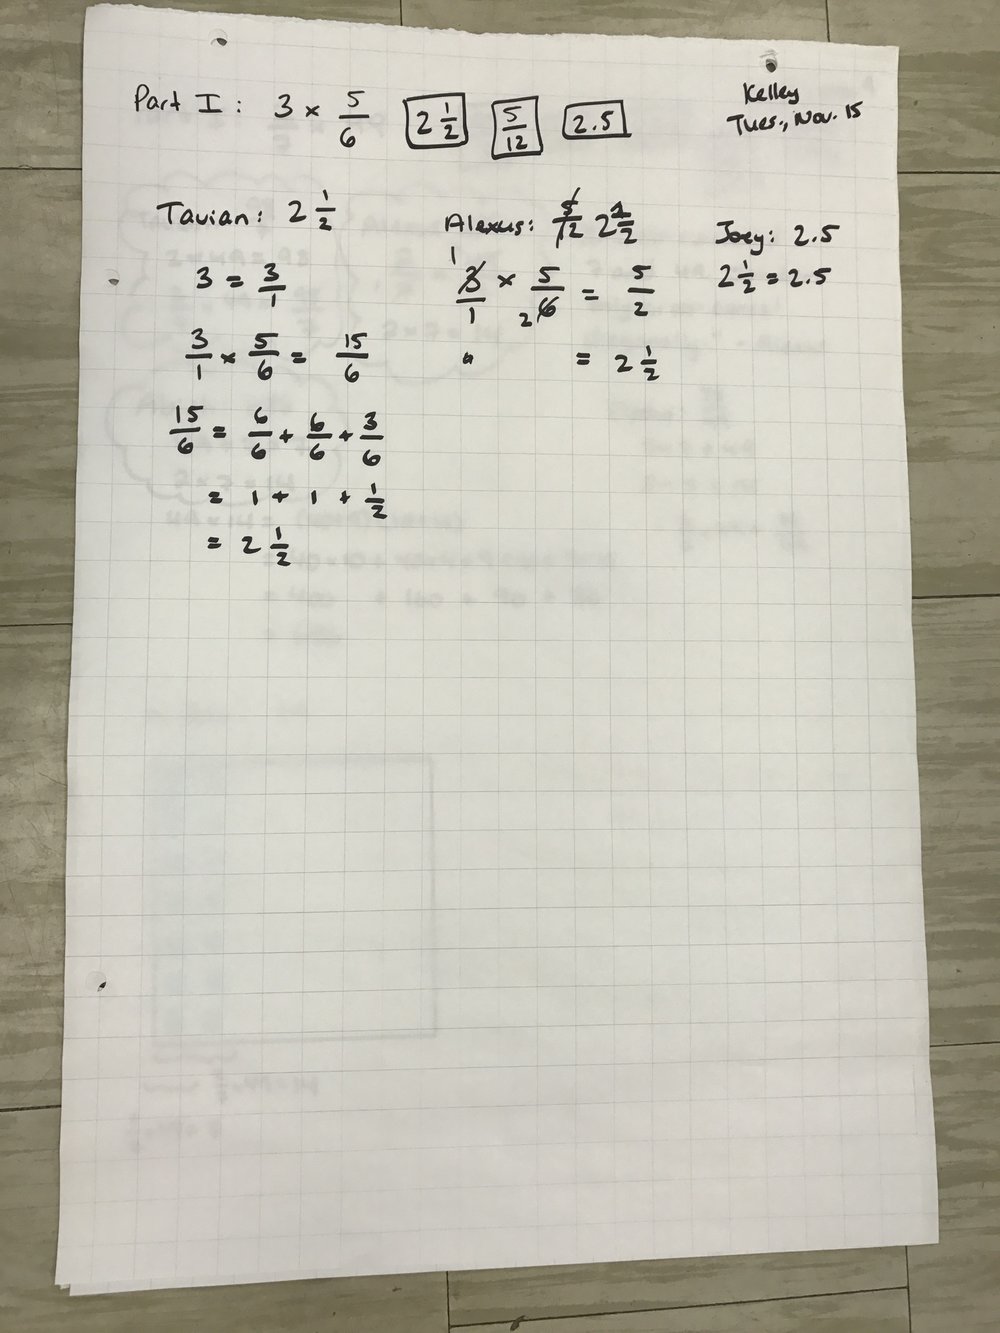 Part I: 3 × 5/6 2 1/2 5/12 2.5
Kelley
Tues., Nov. 15
Tavian: 2 1/2
3 = 3/1
3/1 × 5/6 = 15/6
15/6 = 6/6 + 6/6 + 3/6
= 1 + 1 + 1/2
= 2 1/2
Alexus: 5/12 2 1/2
1
3/1 × 5/6 = 5/2
2
= 2 1/2
Joey: 2.5
2 1/2 = 2.5